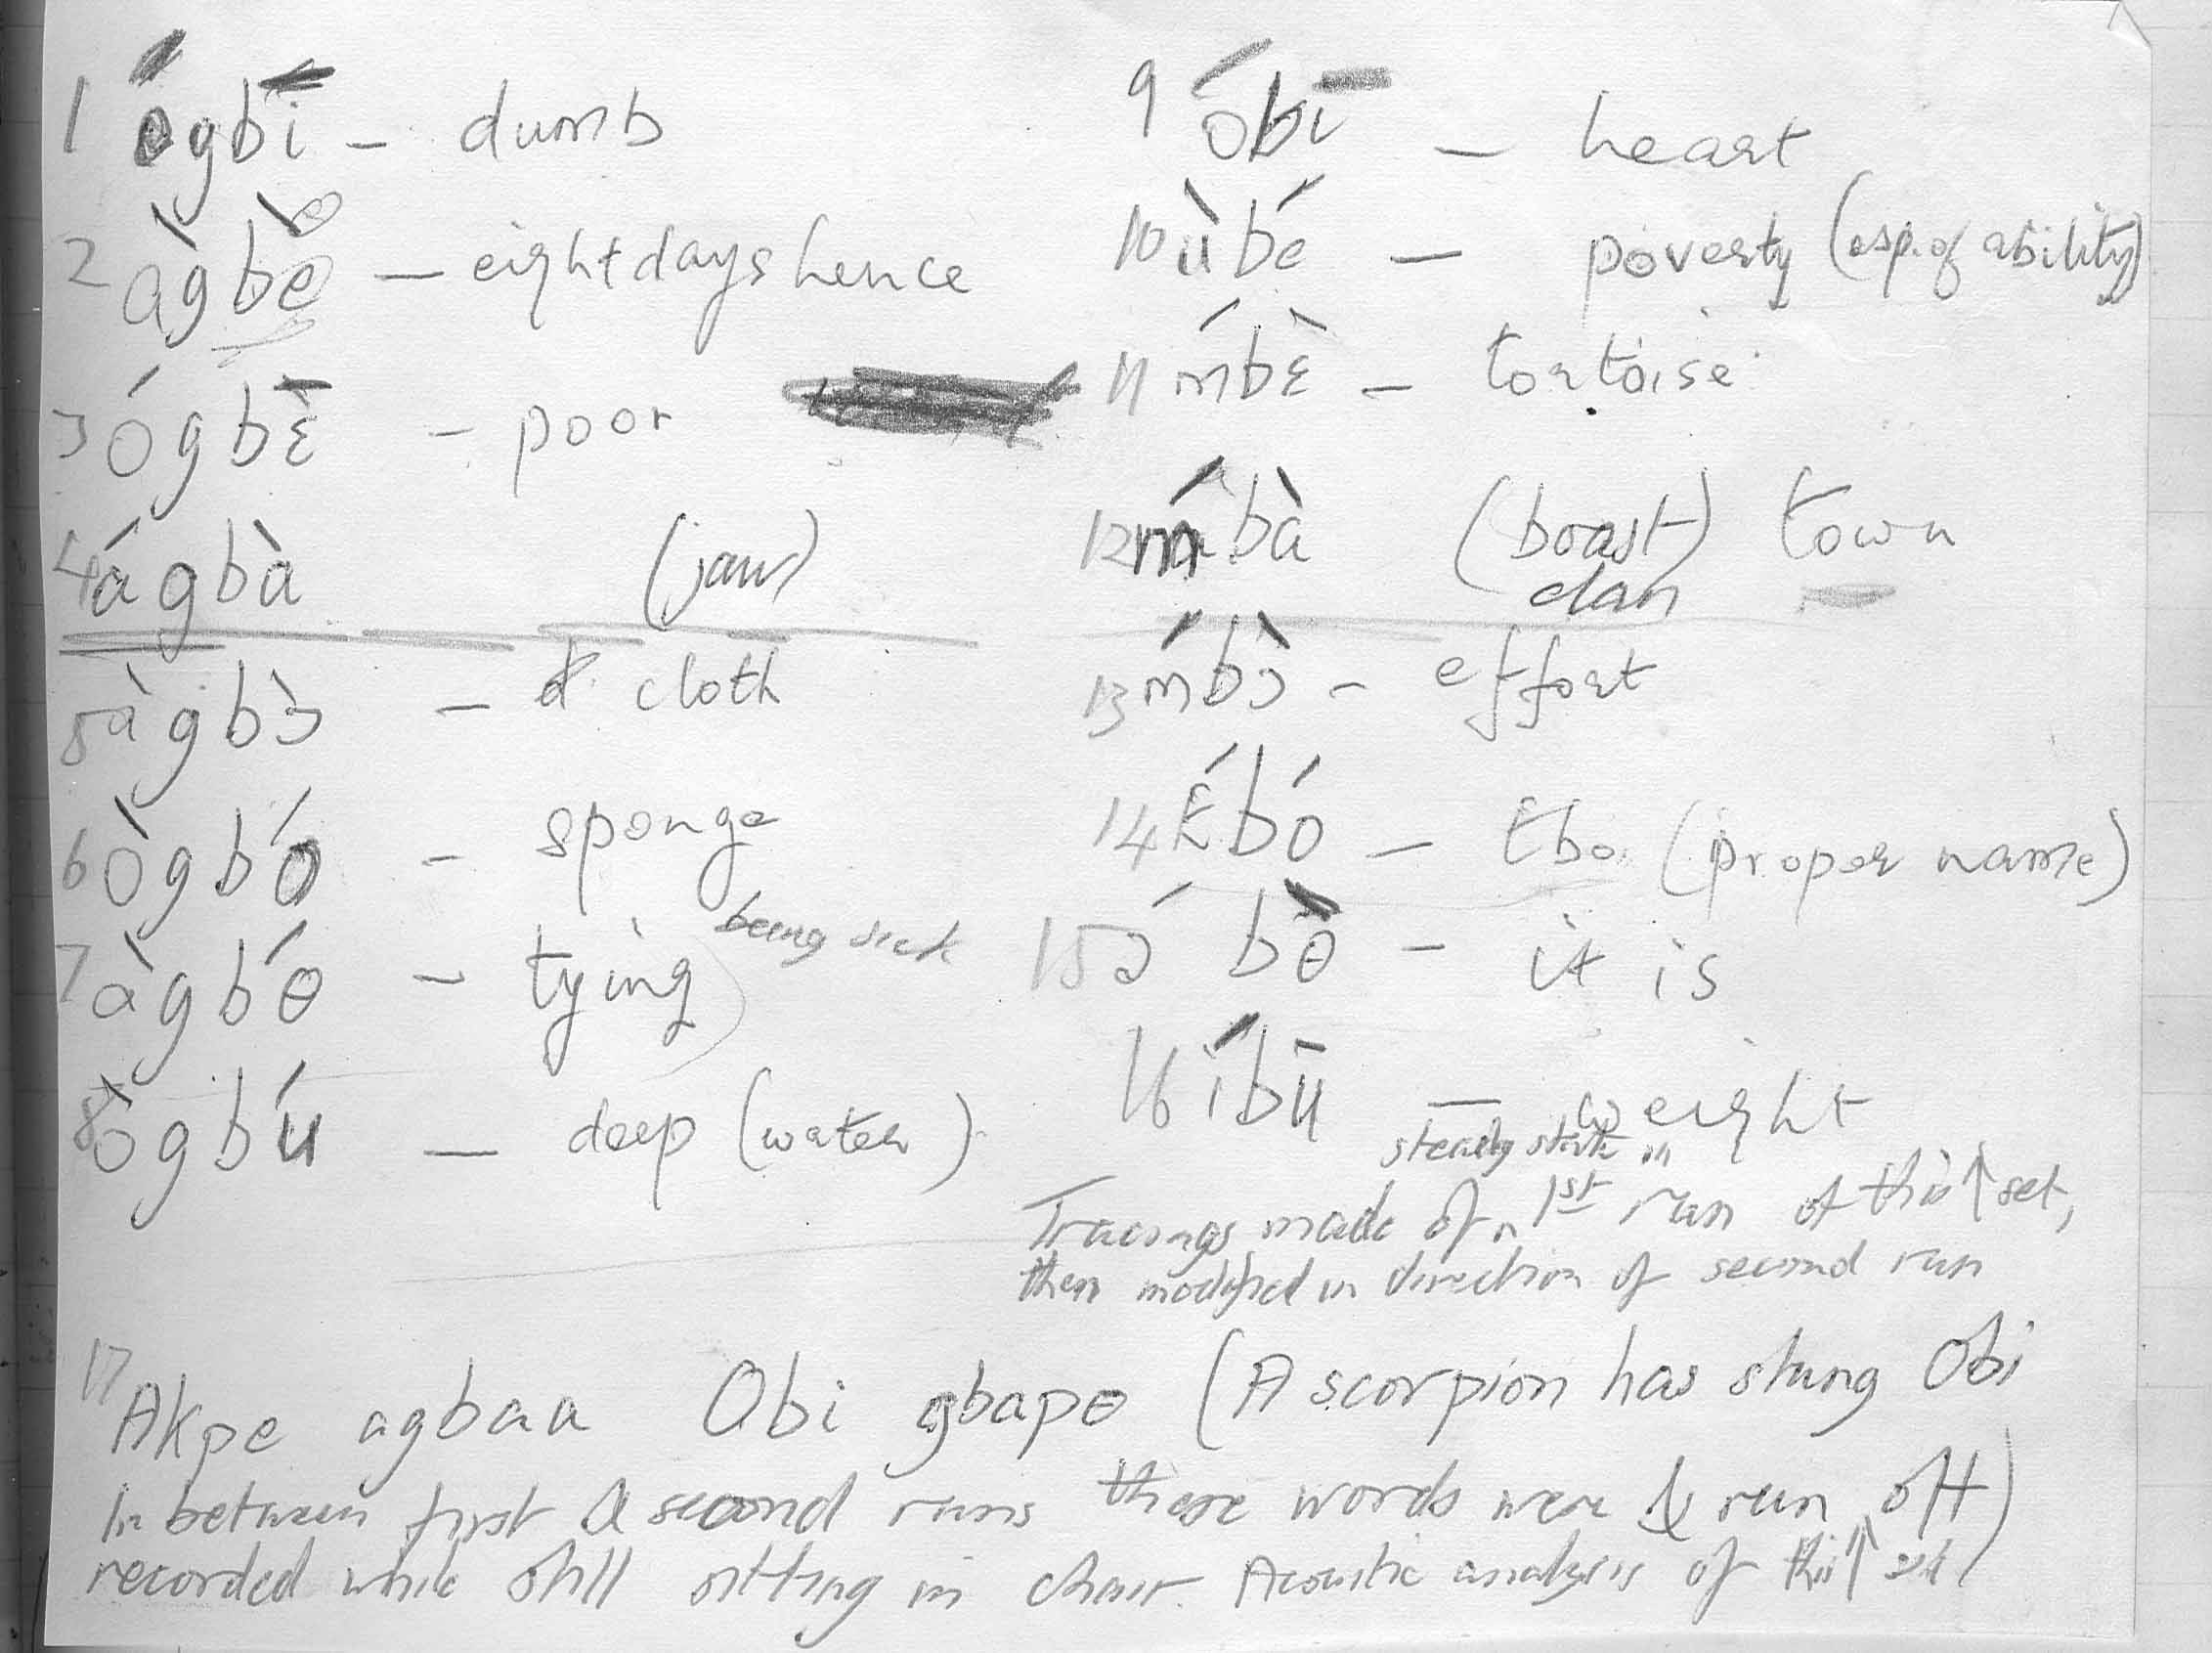 1 ógbī – dumb
2 àgbè – eight days hence
3 ógbɛ̄ – poor
4 ágbà (jaw)
5 àgbɔ̀ – cloth
6 ògbó – sponge
7 àgbɵ́ – tying being sick
8 ògbú – deep (water)
9 óbī – heart
10 ùbé – poverty (esp. of ability)
11 ḿbɛ̀ – tortoise
12 ḿbà (boast) town
clan
13 ḿbɔ̀ – effort
14 Ɛ́bó – Ɛbo (proper name)
15 ɔ́ bɵ̀ – it is
16 íbū – weight
steady state in
Tracings made of 1st run of this ↑ set,
then modified in direction of second run
17 Akpe agbaa Obi gbapɵ (A scorpion has stung Obi
In between first & second runs these words were run off)
recorded while still sitting in chair. Acoustic analysis of this ↑ set